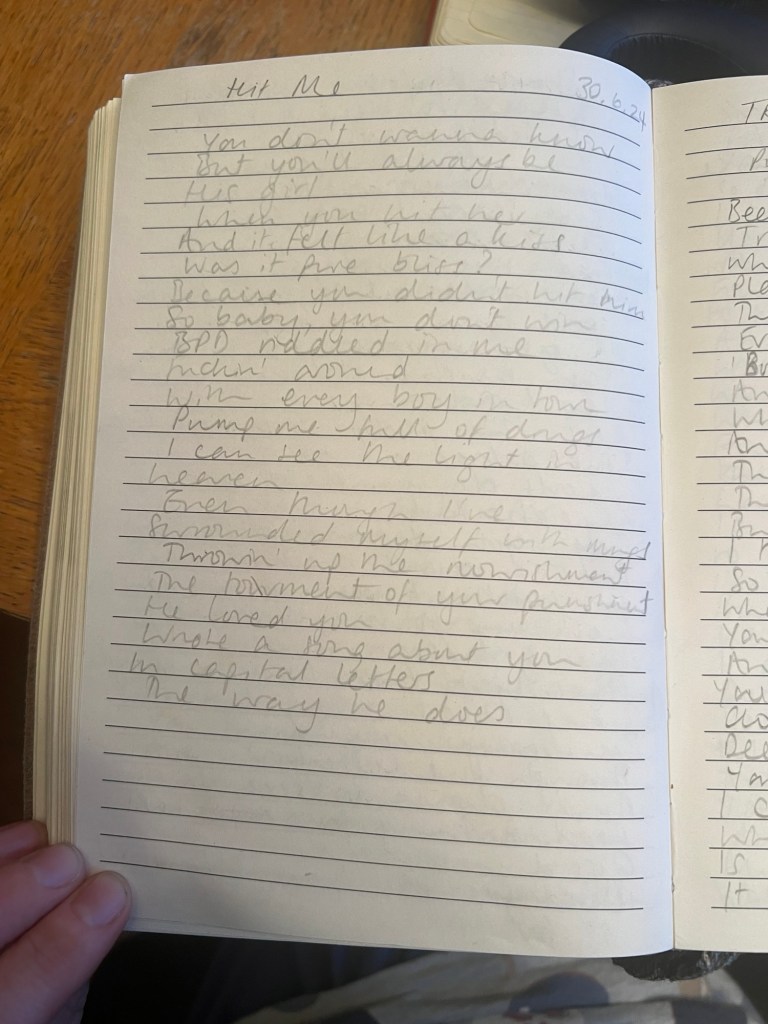 Hit Me 30.6.24
You don't wanna know
But you'll always be
His girl
When you hit her
And it felt like a kiss
Was it pure bliss?
Because you didn't hit him
So baby, you don't win
BPD riddled in me
Fuckin' around
With every boy in town
Pump me full of drugs
I can see the light in
heaven
Even though I've
Surrounded myself with
Throwin' up the nourishment
The torment of your punishment
He loved you
Wrote a song about you
In capital letters
The way he does
Bee
Tr
Wh
Pla
Th
Ev
An
Wh
An
Th
Th
I
So
Whe
You
An
You
Clo
Dee
Yo
I c
Wh
Is
It